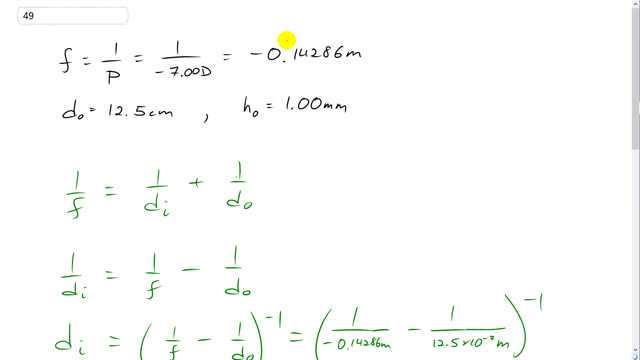 49
f = 1/P = 1/-7.00D = -0.14286m
d₀ = 12.5cm , h₀ = 1.00mm
1/f = 1/dᵢ + 1/d₀
1/dᵢ = 1/f - 1/d₀
dᵢ = (1/f - 1/d₀)⁻¹ = (1/-0.14286m - 1/12.5×10⁻²m)⁻¹